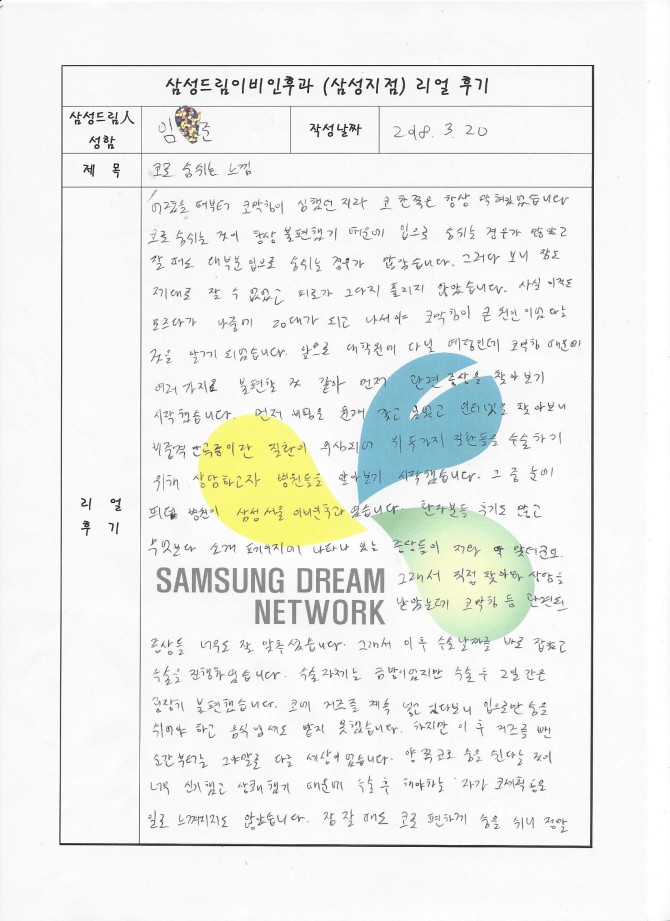 삼성드림이비인후과 (삼성지점) 리얼 후기
삼성드림人 성함
임 준
작성날짜
2018. 3. 20
제 목
코로 숨쉬는 느낌
리 얼
후 기
어렸을 때부터 코막힘이 심했던 지라 코 한쪽은 항상 막혀있었습니다
코로 숨쉬는 것이 항상 불편했기 때문에 입으로 숨쉬는 경우가 많았고
잘 때도 대부분 입으로 숨쉬는 경우가 많았습니다. 그러다 보니 잠도
제대로 잘 수 없었고 피로가 그다지 풀리지 않았습니다. 사실 이것도
모르다가 나중에 20대가 되고 나서야 코막힘이 큰 원인이었다는
것을 알게 되었습니다. 앞으로 대학원에 다닐 예정인데 코막힘 때문에
여러가지로 불편할 것 같아 먼저 관련 증상을 찾아보기
시작했습니다. 먼저 비염은 갖고 있었고 인터넷으로 찾아보니
비중격 만곡증이란 질환이 의심되어 이 두가지 질환들을 수술하기
위해 상담하고자 병원들을 알아보기 시작했습니다. 그 중 눈에
띄던 병원이 삼성서울 이비인후과였습니다. 환자분들 후기도 많고
무엇보다 소개 페이지에 나타나 있는 증상들이 저와 딱 맞더군요.
SAMSUNG DREAM NETWORK
그래서 직접 찾아와 상담을
받았는데 코막힘 등 관련된
증상들 너무도 잘 맞추셨습니다. 그래서 이후 수술날짜를 바로 잡았고
수술을 진행하였습니다. 수술자체는 금방이었지만 수술 후 2일간은
굉장히 불편했습니다. 코에 거즈를 계속 넣고 있다보니 입으로만 숨을
쉬어야 하고 음식 냄새도 맡지 못했습니다. 하지만 이 후 거즈를 뺀
순간부터는 그야말로 다른 세상이었습니다. 양쪽 코로 숨을 쉰다는 것이
너무 신기했고 상쾌했기 때문에 수술 후 해야하는 자가 코세척 등은
일로 느껴지지도 않았습니다. 잠 잘 때도 코로 편하게 숨을 쉬니 정말